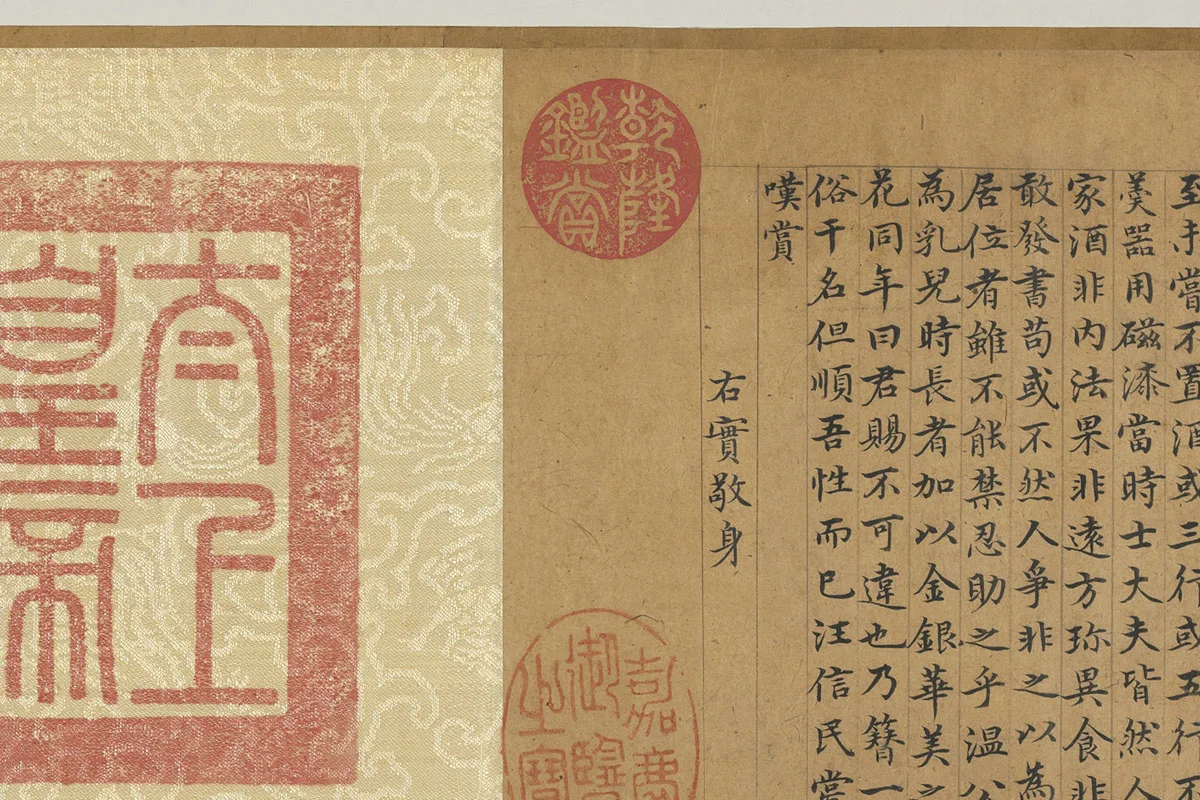 至未嘗不置酒或三行或五行不
羹器用磁漆當時士大夫皆然人
家酒非內法果非遠方珎異食非
敢發書苟或不然人爭非之以為
居位者雖不能禁忍助之乎温公
為乳兒時長者加以金銀華美之
花同年曰君賜不可違也乃簪一
俗干名但順吾性而已汪信民嘗
嘆賞
右實敬身
乾隆
鑑賞
嘉慶
御覽
之寶
太上
皇帝